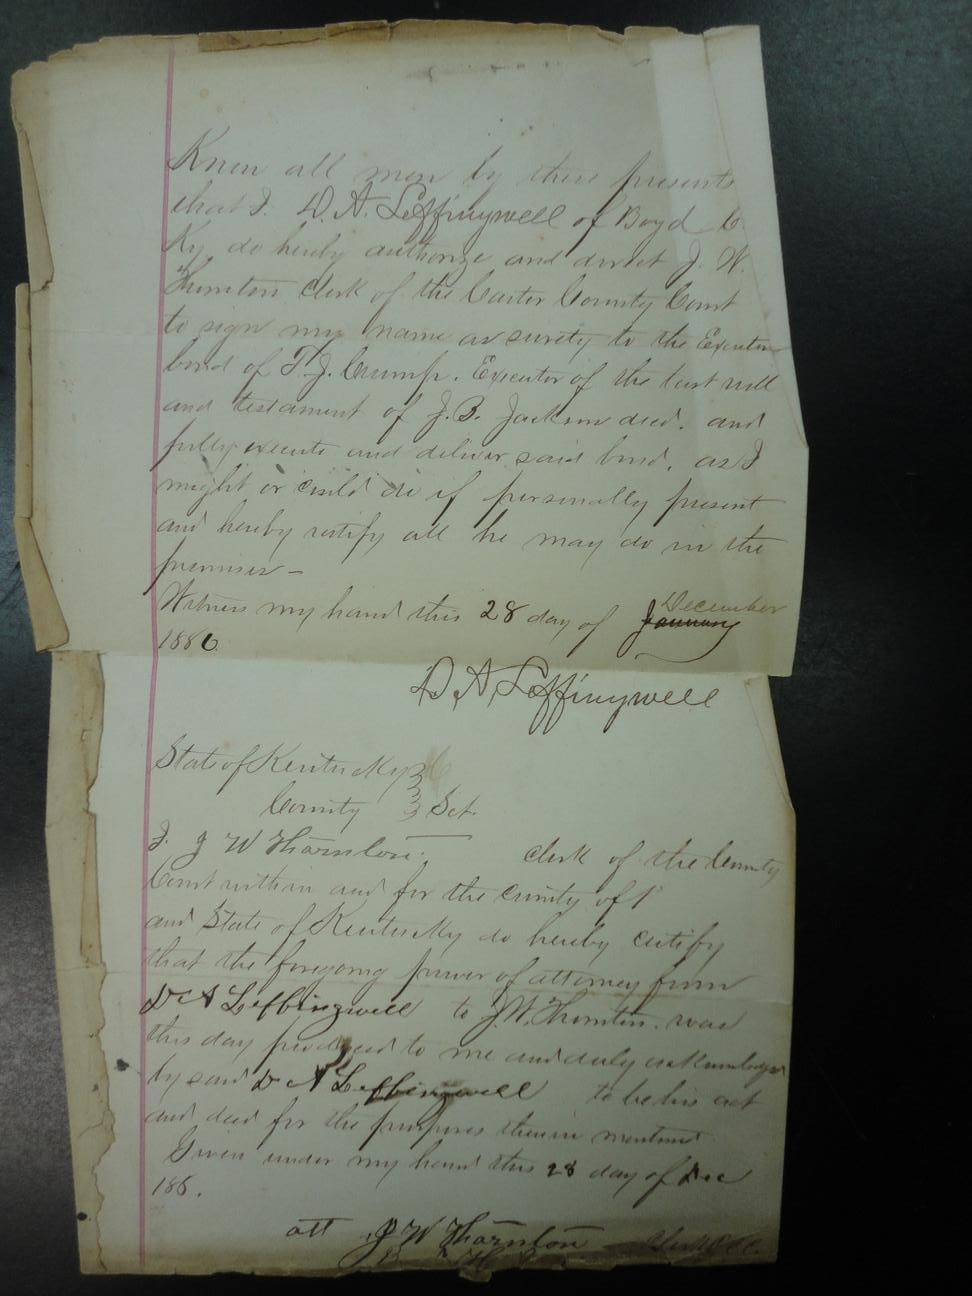 Know all men by these presents
that I. D. A. Leffingwell of Boyd Co
Ky do hereby authorize and direct J. W.
Thornton Clerk of the Carter County Court
to sign my name as surety to the Executor
bond of T. J. Crump. Executor of the last will
and testament of J. B. Jackson decd. and
fully execute and deliver said bond, as I
might or could do if personally present
and hereby ratify all he may do in the
premises –
Witness my hand this 28 day of January December
1886
D A Leffingwell
State of Kentucky
County Sct.
I. J W Thornton. clerk of the County
Court within and for the county of
and State of Kentucky do hereby certify
that the foregoing power of attorney from
D A Leffingwell to J. W. Thornton. was
this day produced to me and duly acknowledged
by said D A Leffingwell to be his act
and deed for the purposes therein mentioned
Given under my hand this 28 day of Dec
188.
att J W Thornton Clerk